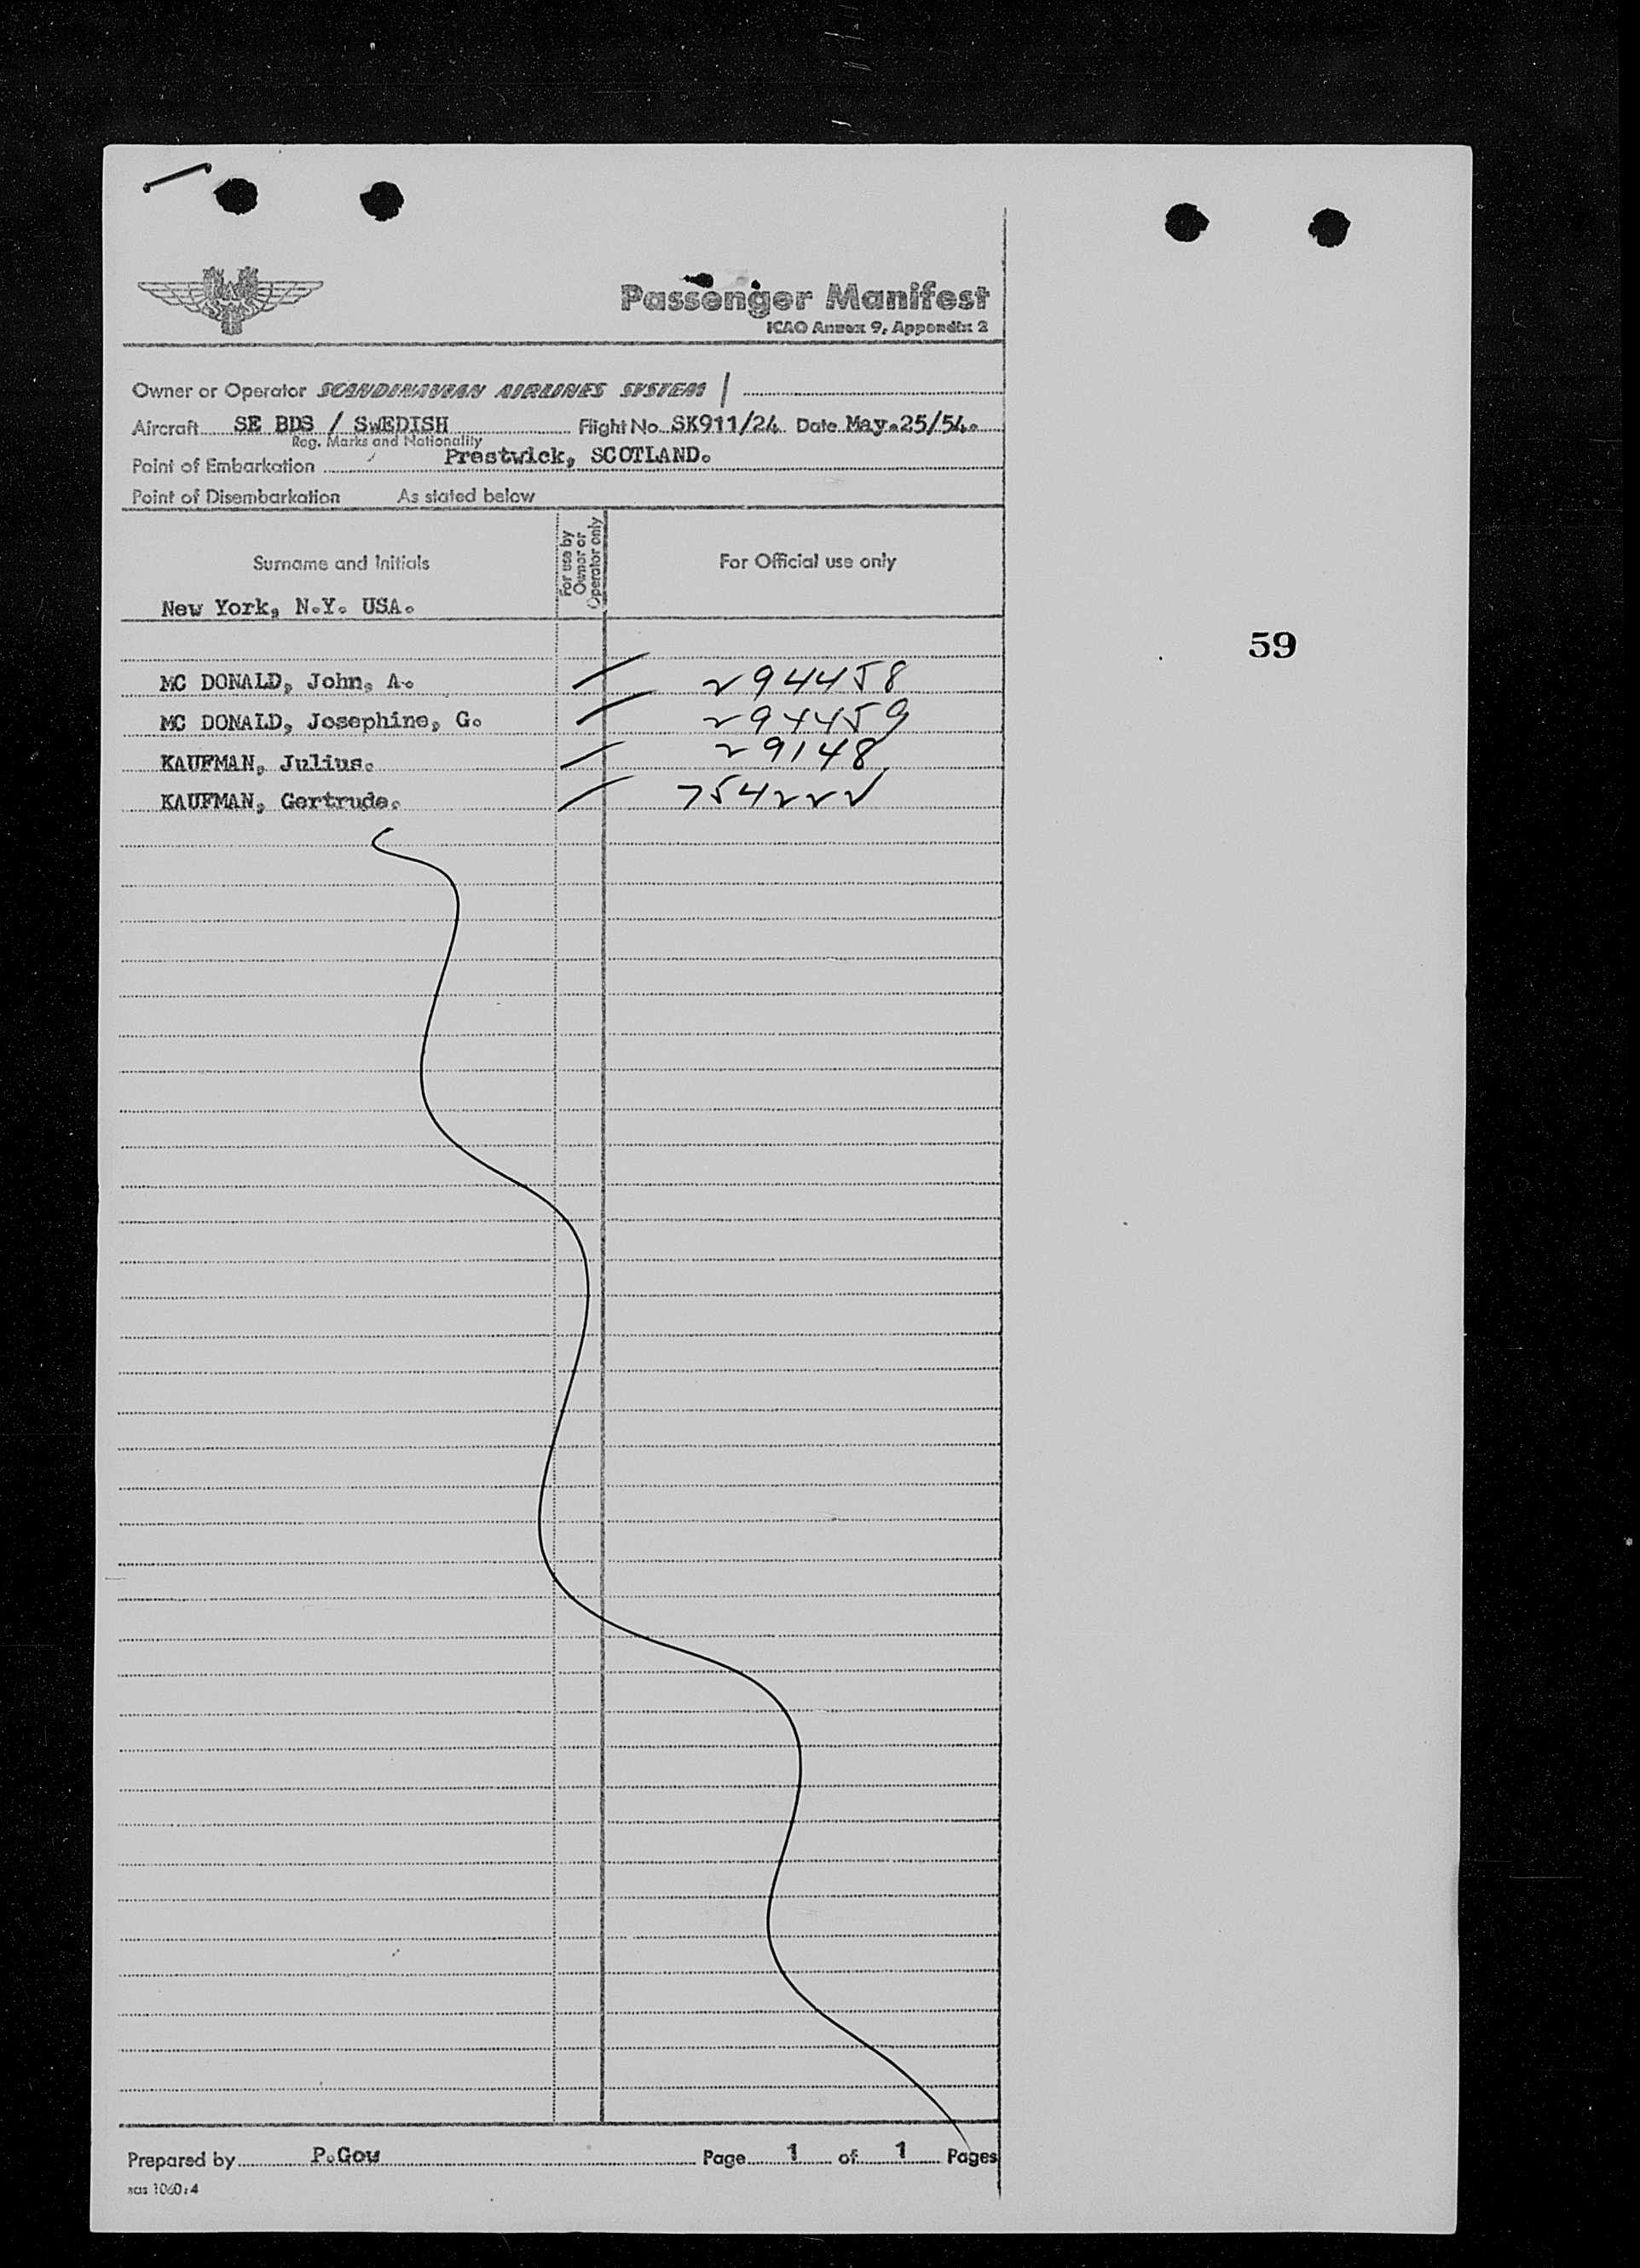 Passenger Manifest
ICAO Annex 9, Appendix 2
Owner or Operator SCANDINAVIAN AIRLINES SYSTEM
Aircraft SE BDS / SWEDISH Flight No. SK911/24 Date May.25/54.
Reg. Marks and Nationality
Point of Embarkation Prestwick, SCOTLAND.
Point of Disembarkation As stated below
Surname and Initials
For use by
Owner or
Operator only
For Official use only
New York, N.Y. USA.
59
MC DONALD, John, A. 294458
MC DONALD, Josephine, G. 294459
KAUFMAN, Julius. 29148
KAUFMAN, Gertrude. 754222
Prepared by P.Gow Page 1 of 1 Pages
sas 1060:4